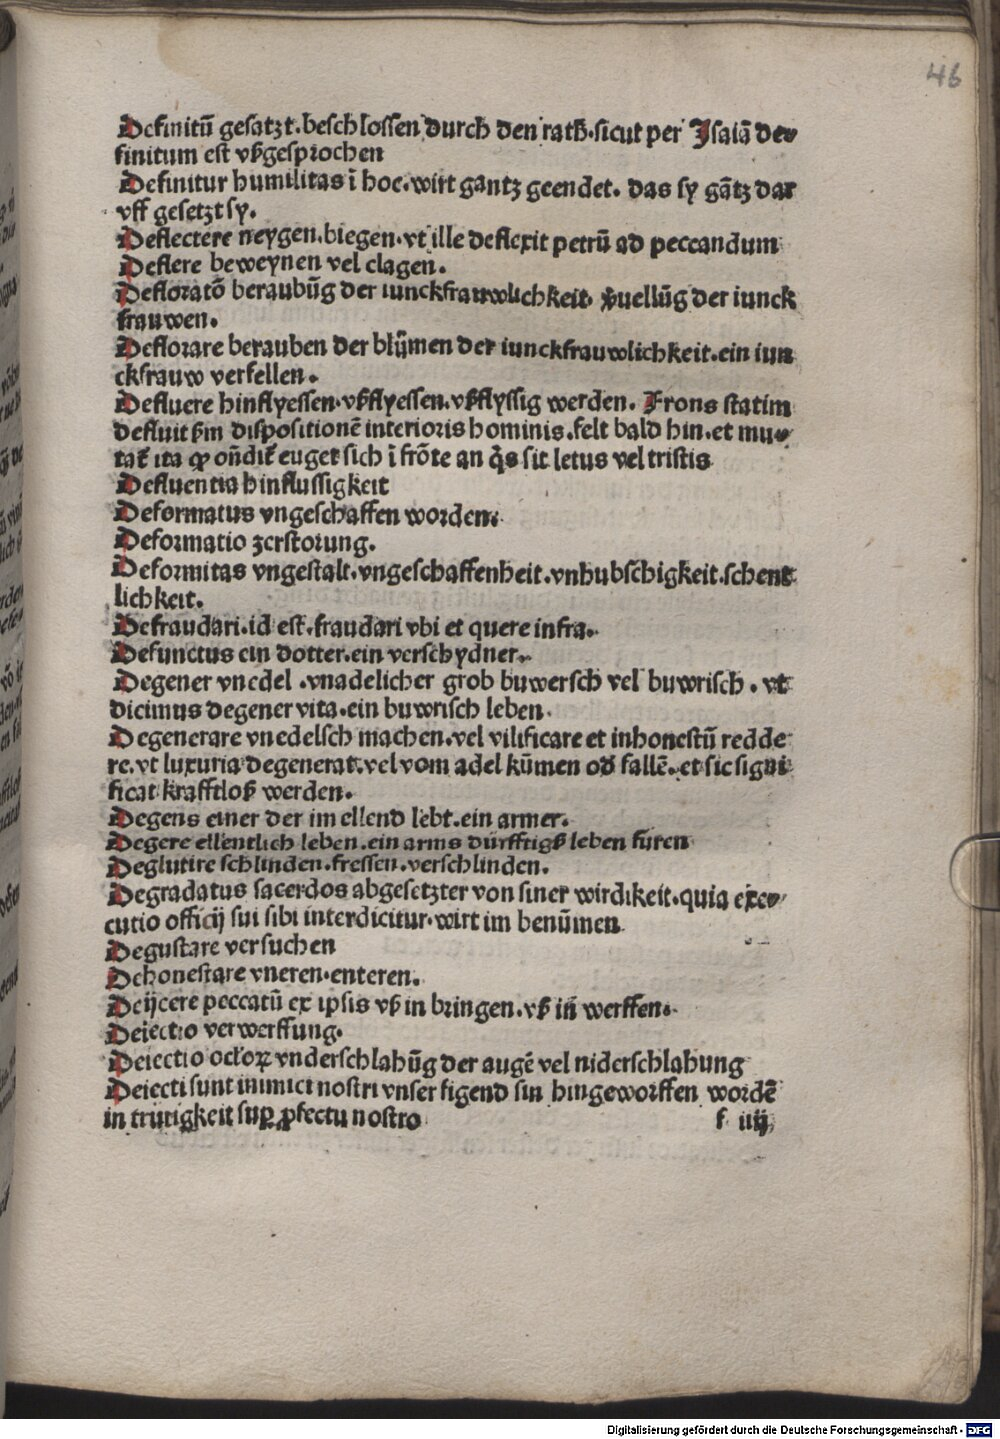 46
Definitū gesatzt. beschlossen durch den rath. sicut per Isaiā de⸗
finitum est vßgesprochen
Definitur humilitas ī hoc. wirt gantz geendet. das sy gātz dar
vff gesetzt sy.
Deflectere neygen. biegen. vt ille deflexit petrū ad peccandum
Deflere beweynen vel clagen.
Defloratō beraubūg der iunckfrauwlichkeit. v̓uellūg der iunck
frauwen.
Deflorare berauben der blūmen der iunckfrauwlichkeit. ein iun
ckfrauw verfellen.
Defluere hinflyessen. vßflyessen. vßflyssig werden. Frons statim
defluit ẜm dispositionē interioris hominis. felt bald hin. et mu⸗
tat᷑ ita ꝙ oñdit᷑ euget sich ī frōte an q̇s sit letus vel tristis
Defluentia hinflussigkeit
Deformatus vngeschaffen worden.
Deformatio zerstorung.
Deformitas vngestalt. vngeschaffenheit. vnhubschigkeit. schent
lichkeit.
Defraudari. id est. fraudari vbi et quere infra.
Defunctus ein dotter. ein verschydner.
Degener vnedel. vnadelicher grob buwersch vel buwrisch. vt
dicimus degener vita. ein buwrisch leben.
Degenerare vnedelsch machen. vel vilificare et inhonestū redde
re. vt luxuria degenerat. vel vom adel kūmen oď fallē. et sic signi
ficat krafftloß werden.
Degens einer der im ellend lebt. ein armer.
Degere ellentlich leben. ein arms dürfftigs leben füren
Deglutire schlinden. fressen. verschlinden.
Degradatus sacerdos abgesetzter von siner wirdikeit. quia exe⸗
cutio officij sui sibi interdicitur. wirt im benūmen
Degustare versuchen
Dehonestare vneren. enteren.
Deijcere peccatū ex ipsis vß in bringen. vß iñ werffen.
Deiectio verwerffung.
Deiectio oculoꝝ vnderschlahūg der augē vel niderschlahung
Deiecti sunt inimici nostri vnser figend sin hingeworffen wordē
in trutigkeit suꝑ ꝓfectu nostro
f iiij
Digitalisierung gefördert durch die Deutsche Forschungsgemeinschaft - DFG